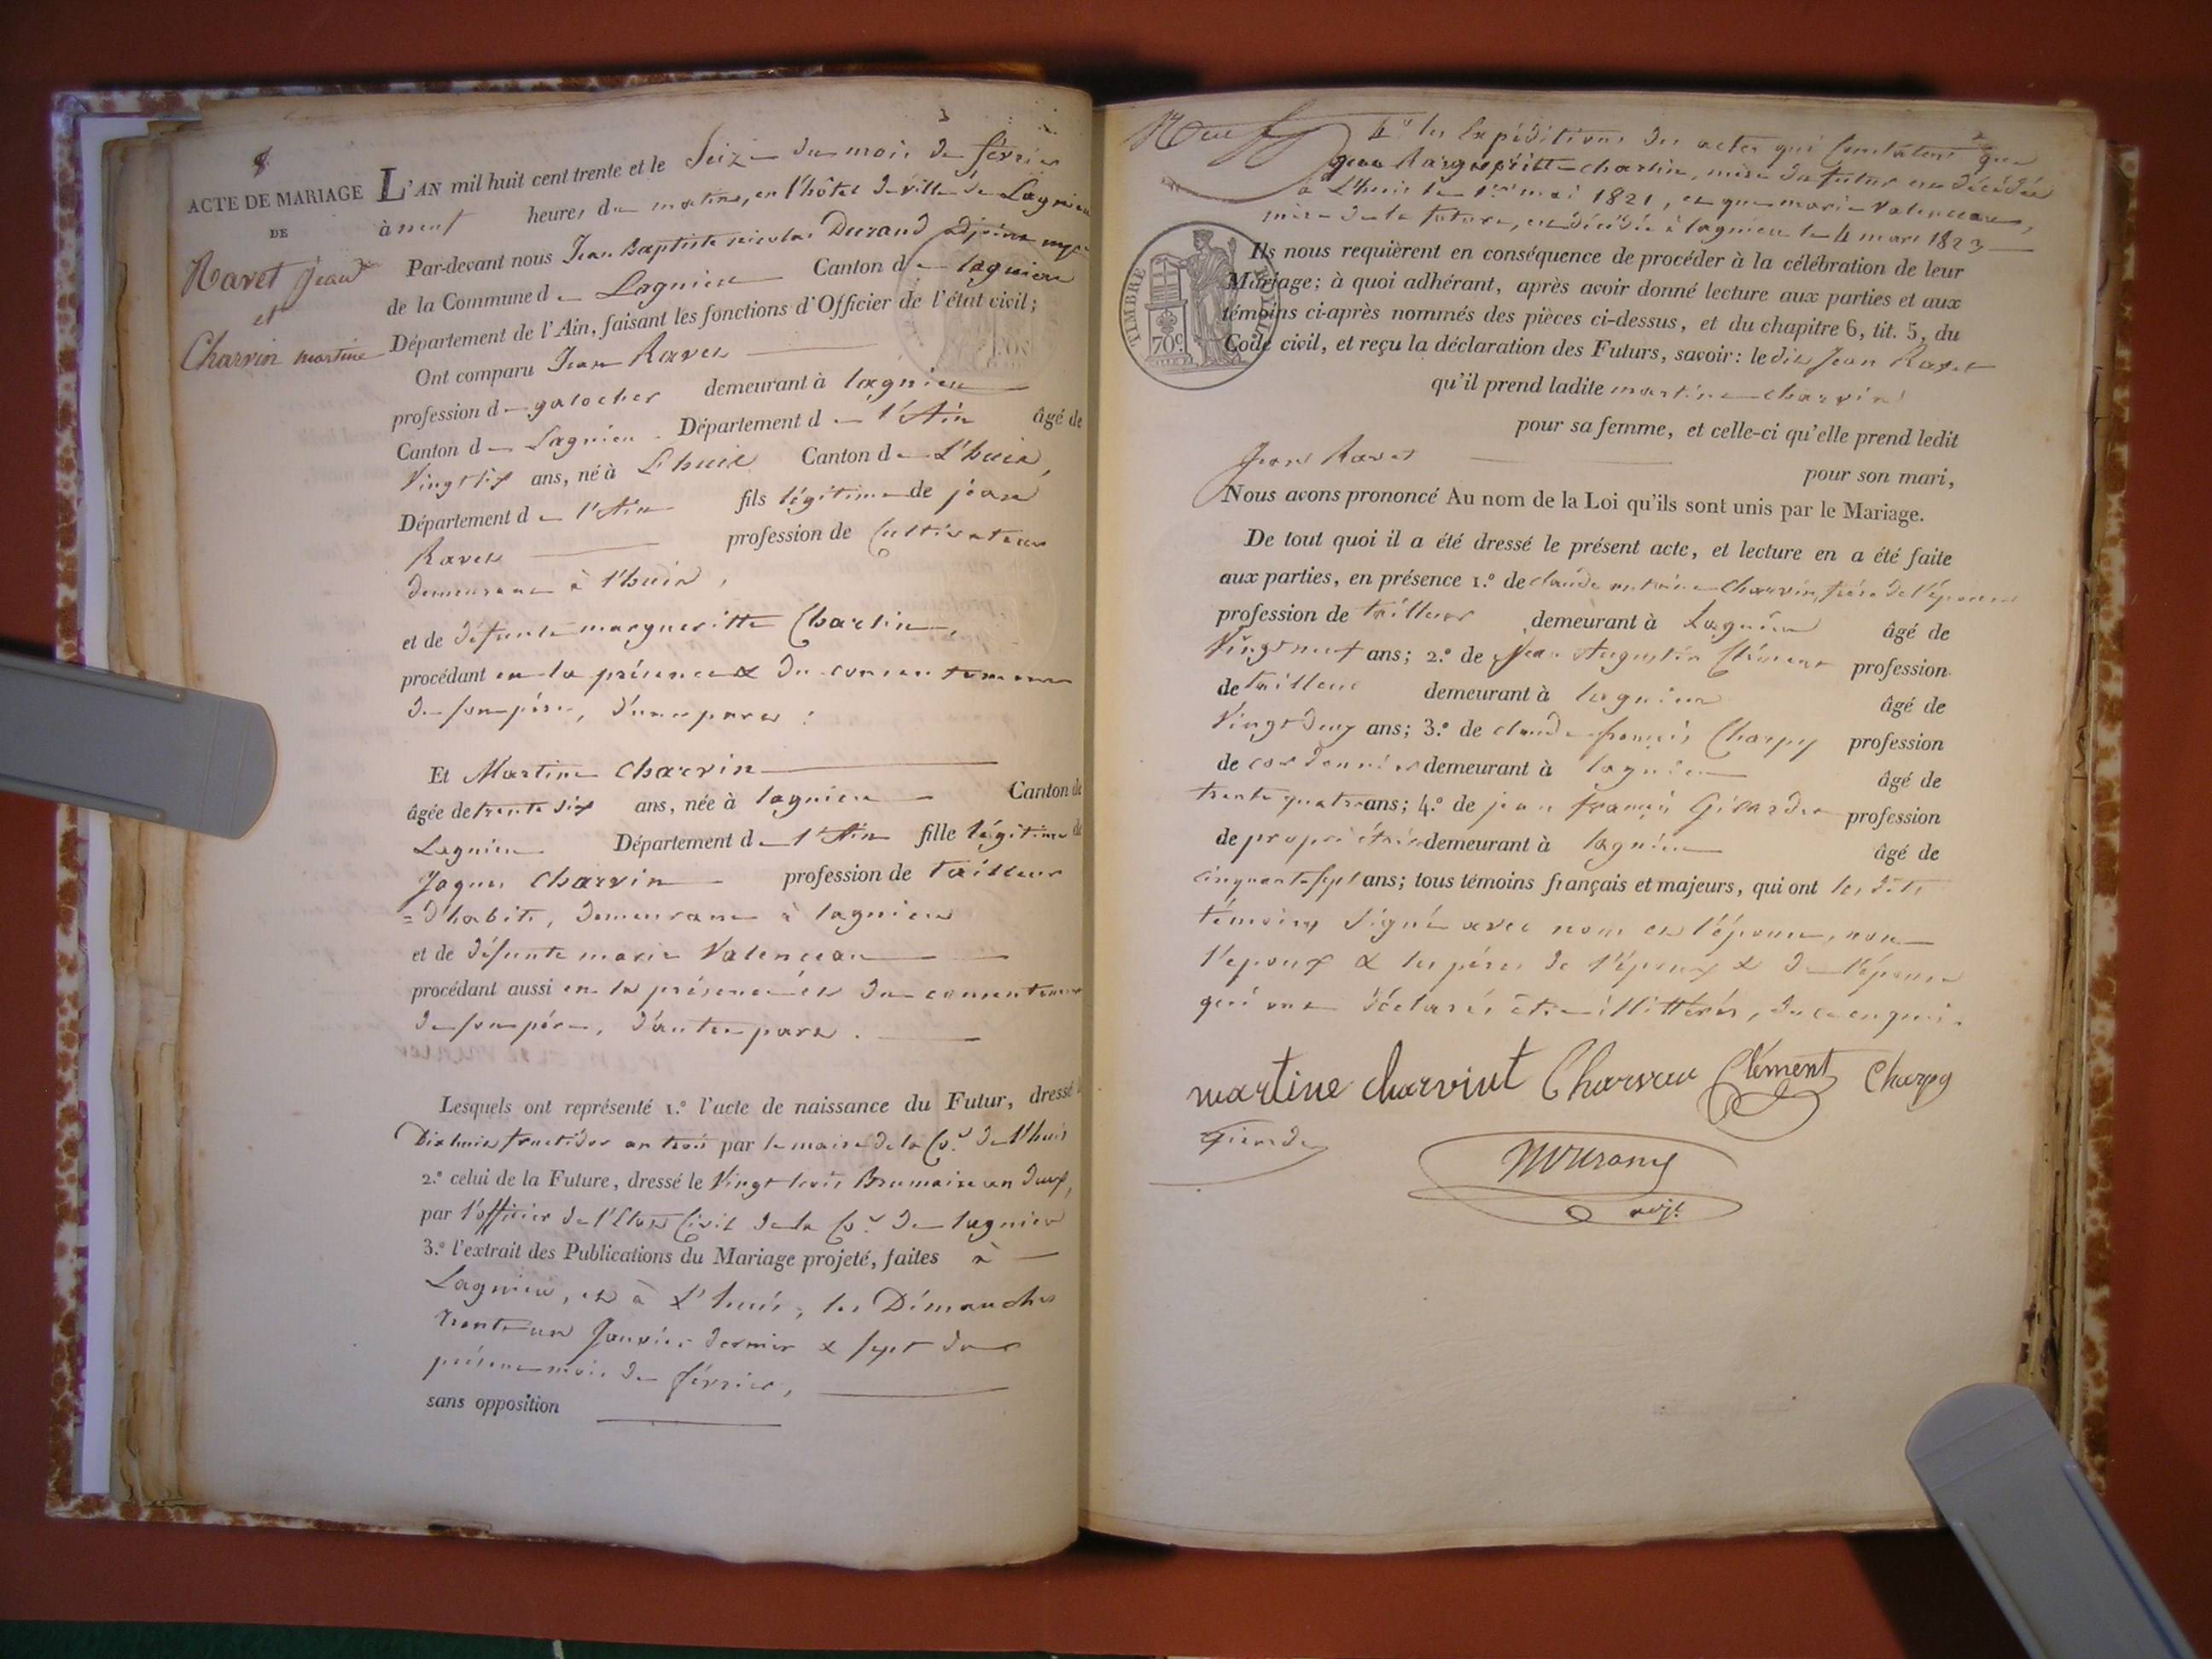 8
ACTE DE MARIAGE
DE
Ravet Jean
et
Charvin martine
3
L'AN mil huit cent trente et le Seize du mois de février
à neuf heures du matin, en l'hôtel de ville de Lagnieu
Par-devant nous Jean Baptiste nicolas Durand adjoint
de la Commune de Lagnieu Canton de lagnieu
Département de l'Ain, faisant les fonctions d'Officier de l'état civil;
Ont comparu Jean Ravet
profession de galocher demeurant à lagnieu
Canton de Lagnieu Département de l'Ain âgé de
Vingt six ans, né à L'huis Canton de L'huis,
Département de l'Ain fils légitime de jean
Ravet profession de Cultivateur
demeurant à l'huis,
et de défunte margueritte Charlin,
procédant en la présence & du consentement
de son père, d'une part :
Et Martine Charvin
âgée de trente six ans, née à lagnieu Canton de
Lagnieu Département de l'Ain fille légitime de
Jaques Charvin profession de tailleur
=d'habits, demeurant à lagnieu
et de défunte marie Valenceau
procédant aussi en la présence et du consentement
de son père, d'autre part.
Lesquels ont représenté 1.º l'acte de naissance du Futur, dressé
Dix huit fructidor an trois par le maire de la Cne de l'huis
2.º celui de la Future, dressé le Vingt trois Brumaire an deux,
par l'officier de l'Etat Civil de la Cne de lagnieu
3.º l'extrait des Publications du Mariage projeté, faites à
Lagnieu, et à L'huis, les Dimanches
trente un Janvier dernier & sept du
présent mois de février,
sans opposition
4º les Expéditions des actes qui Constatent que
Margueritte charlin, mère du futur est décédée
à L'huis le 1er mai 1821, et que marie Valenceau,
mère de la future, est décédée à lagnieu le 4 mars 1823
TIMBRE
70c.
Ils nous requièrent en conséquence de procéder à la célébration de leur
Mariage; à quoi adhérant, après avoir donné lecture aux parties et aux
témoins ci-après nommés des pièces ci-dessus, et du chapitre 6, tit. 5, du
Code civil, et reçu la déclaration des Futurs, savoir: le dit Jean Ravet
qu'il prend ladite martine charvin
pour sa femme, et celle-ci qu'elle prend ledit
Jean Ravet pour son mari,
Nous avons prononcé Au nom de la Loi qu'ils sont unis par le Mariage.
De tout quoi il a été dressé le présent acte, et lecture en a été faite
aux parties, en présence 1.º de claude antoine Charvin, frère de l'épouse
profession de tailleur demeurant à Lagnieu âgé de
Vingt neuf ans; 2.º de Jean Augustin Clément profession
de tailleur demeurant à lagnieu âgé de
Vingt deux ans; 3.º de claude françois Charpy profession
de cordonnier demeurant à lagnieu âgé de
trente quatre ans; 4.º de jean françois Girardet profession
de propriétaire demeurant à lagnieu âgé de
cinquante sept ans; tous témoins français et majeurs, qui ont les dits
témoins signé avec nous et l'épouse, non
l'epoux & les pères de l'époux & de l'épouse
qui ont déclarés être illittérés, de ce enquis.
martine charvint Charvin Clément Charpy
Durand
adjt